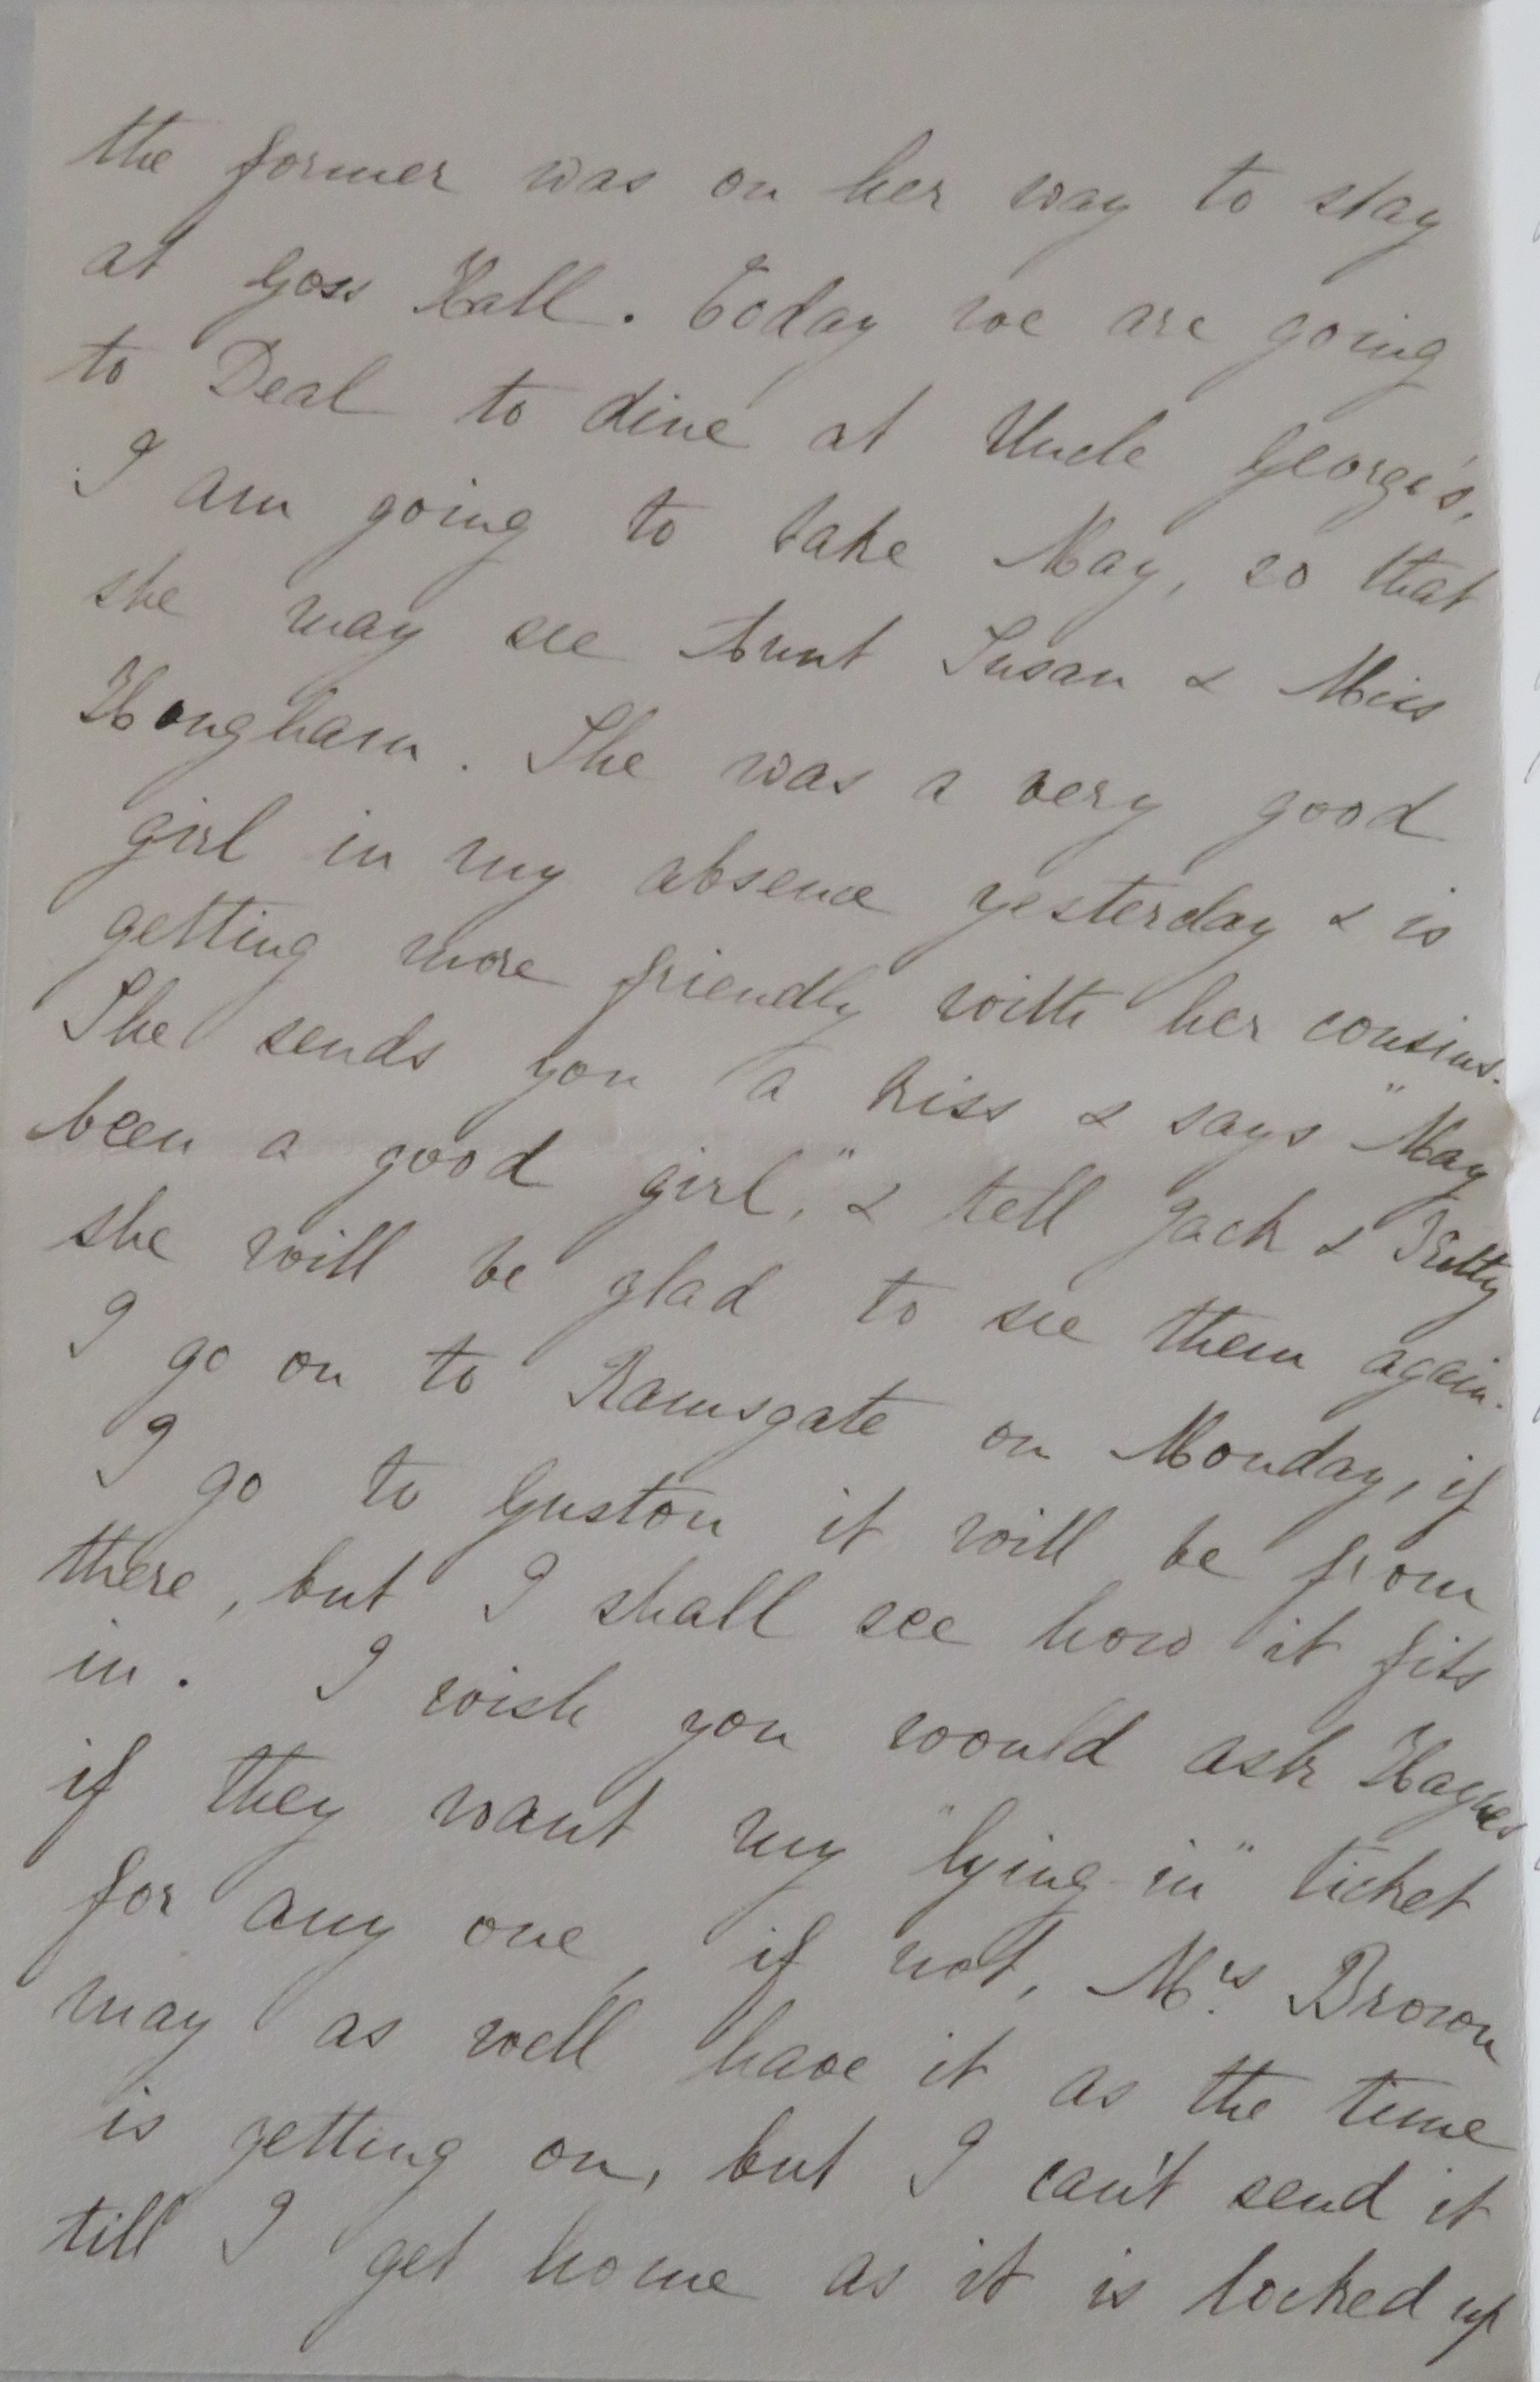 the former was on her way to stay
at Goss Hall. Today we are going
to Deal to dine at Uncle George's,
I am going to take May, so that
she may see Aunt Susan & Miss
Hougham. She was a very good
girl in my absence yesterday & is
getting more friendly with her cousins.
She sends you a kiss & says "May
been a good girl," & tell Jack & Kitty
she will be glad to see them again.
I go on to Ramsgate on Monday, if
I go to Guston it will be from
there, but I shall see how it fits
in. I wish you would ask Haynes
if they want my "lying-in" ticket
for any one, if not, Mrs. Brown
may as well have it as the time
is getting on, but I can't send it
till I get home as it is locked up